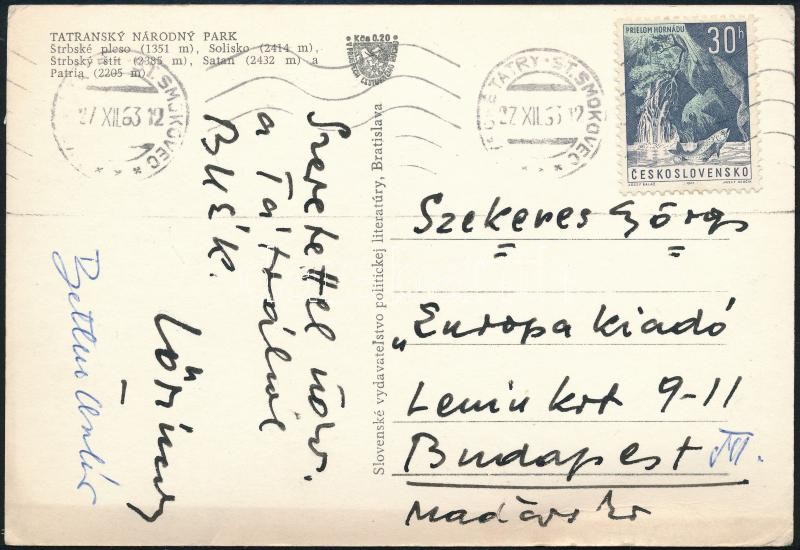 TATRANSKÝ NÁRODNÝ PARK
Štrbské pleso (1351 m), Solisko (2414 m),
Štrbský štít (2385 m), Satan (2432 m) a
Patria (2205 m)
Kčs 0.20
TATRY · ST. SMOKOVEC
27 XII. 63 12
TATRY · ST. SMOKOVEC
27 XII. 63 12
PRIELOM HORNÁDU
30h
ČESKOSLOVENSKO
Slovenské vydavateľstvo politickej literatúry, Bratislava
Szeretettel üdv.
a Tátrából
BUÉK.
Szekeres György
"Európa kiadó
Lenin krt 9-11
Budapest VII.
Maďarsko